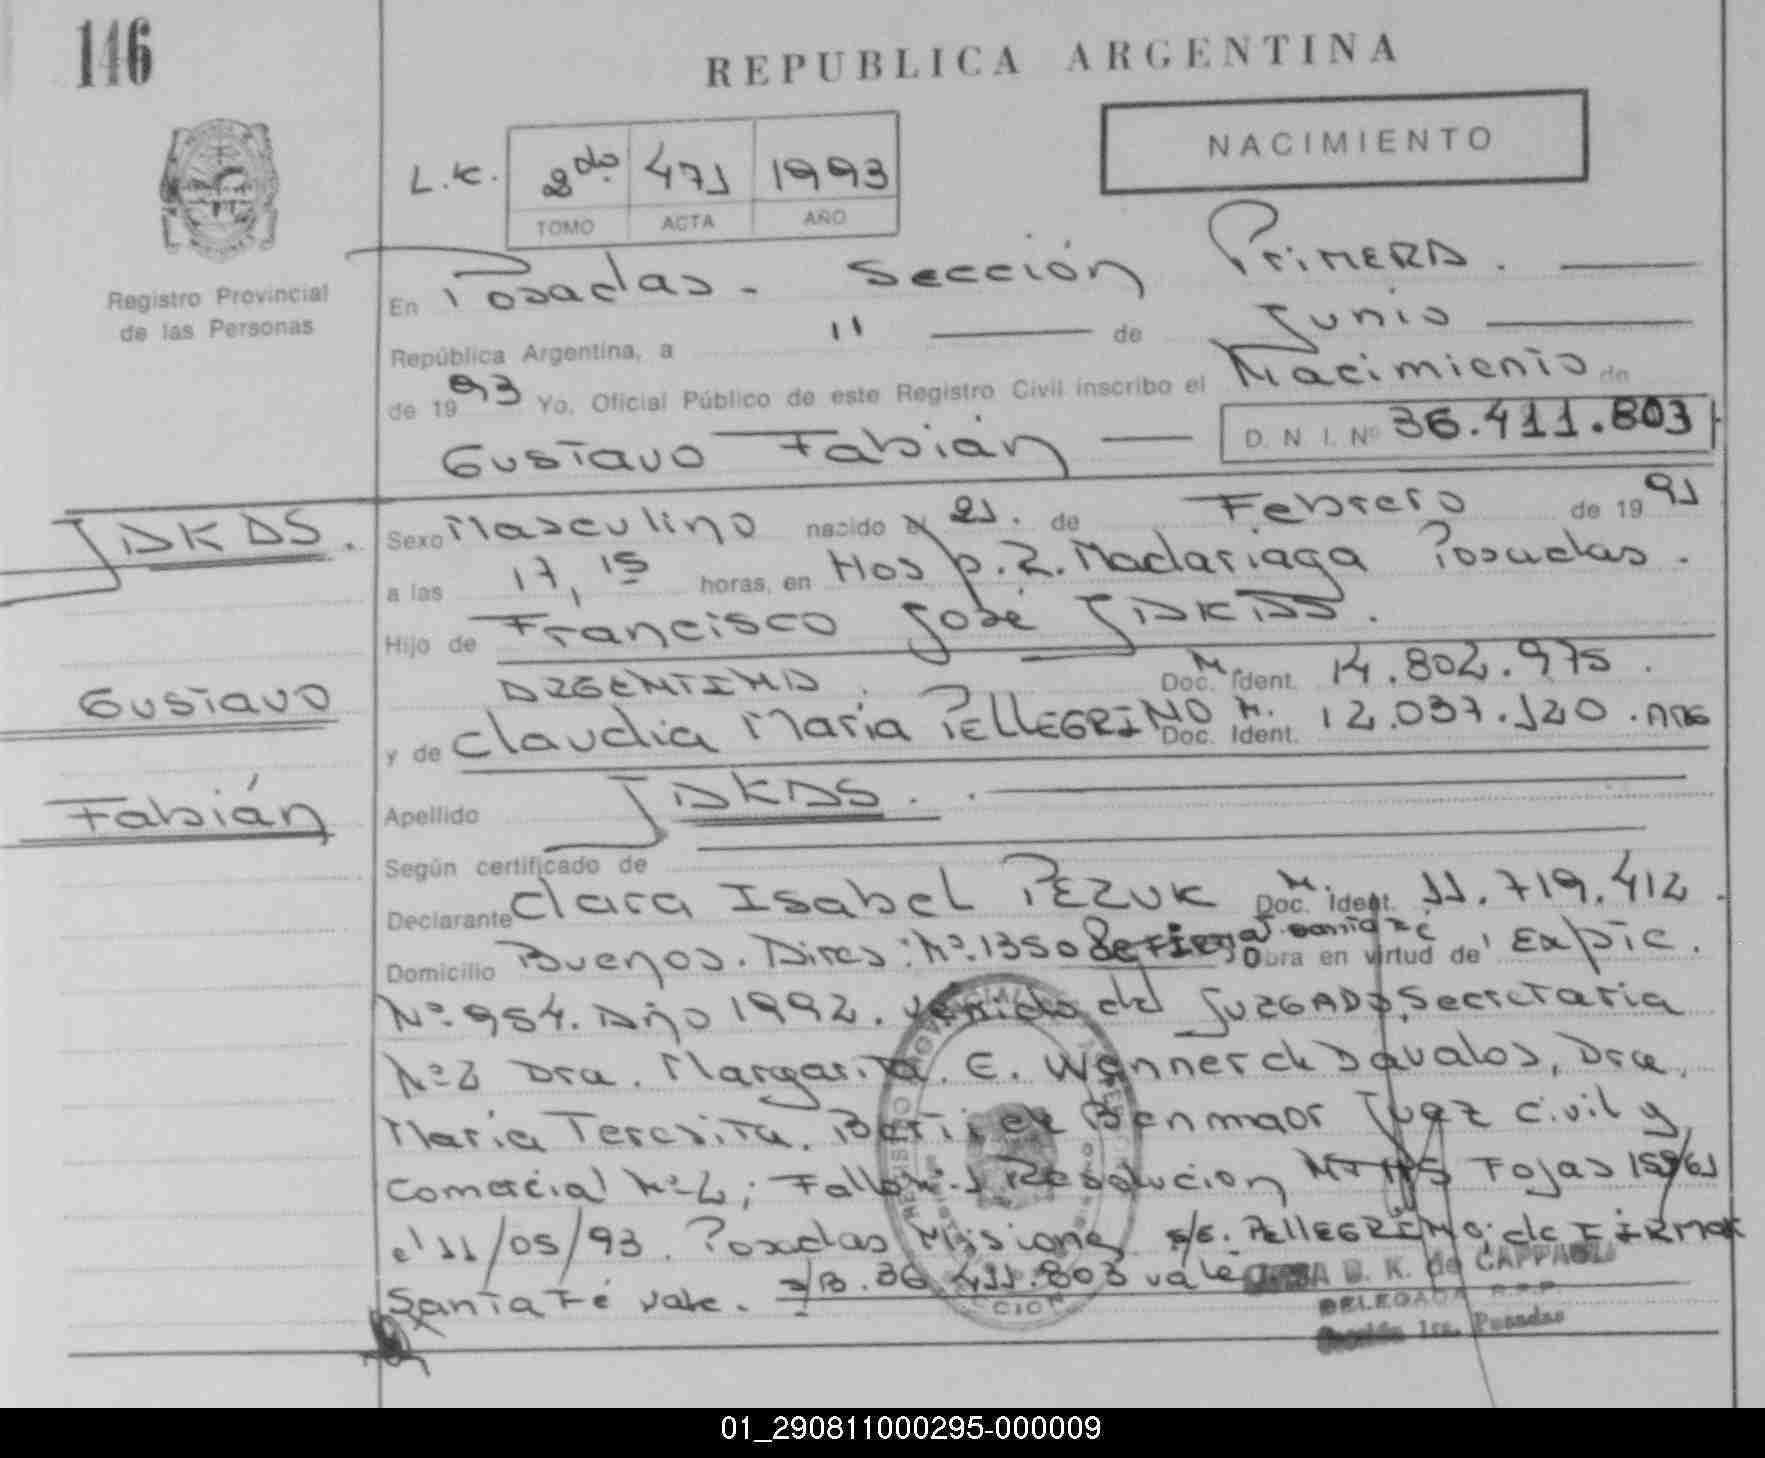 146
REPUBLICA ARGENTINA
NACIMIENTO
L.C. 2do. 471 1993
TOMO ACTA AÑO
Registro Provincial
de las Personas
En Posadas. Sección Primera.
República Argentina, a 11 de Junio
de 1993 Yo, Oficial Público de este Registro Civil inscribo el Nacimiento de
Gustavo Fabián D. N. I. Nº 36.411.803
JAKAS.
Gustavo
Fabián
Sexo Masculino nacido el 21. de Febrero de 1991
a las 17,15 horas, en Hosp. R. Madariaga Posadas.
Hijo de Francisco José JAKAS.
ARGENTINA. Doc. M Ident. 14.802.975.
y de Claudia María PELLEGRINO Doc. M. Ident. 12.037.120. ARG
Apellido JAKAS.
Según certificado de
Declarante Clara Isabel PEZUK Doc. M. Ident. 11.719.412.
Domicilio Buenos. Aires: Nº.1350 Obra en virtud de Expte.
Nº.954. Año 1992. venido del JUZGADO, Secretaria
Nº2 Dra. Margarita. E. Wenner de Davalos, Dra.
Maria Teresita. Benmaor Juez Civil y
Comercial Nº2; Fallo Nº1 Resolucion Fojas
el 11/05/93. Posadas Misiones s/c. PELLEGRINO; de FIRMAR
Santa Fé vale. 36.411.803 vale
B. K. de CAPPA
DELEGADA R.P.P.
Sección 1ra. Posadas
REGISTRO PROVINCIAL
01_290811000295-000009